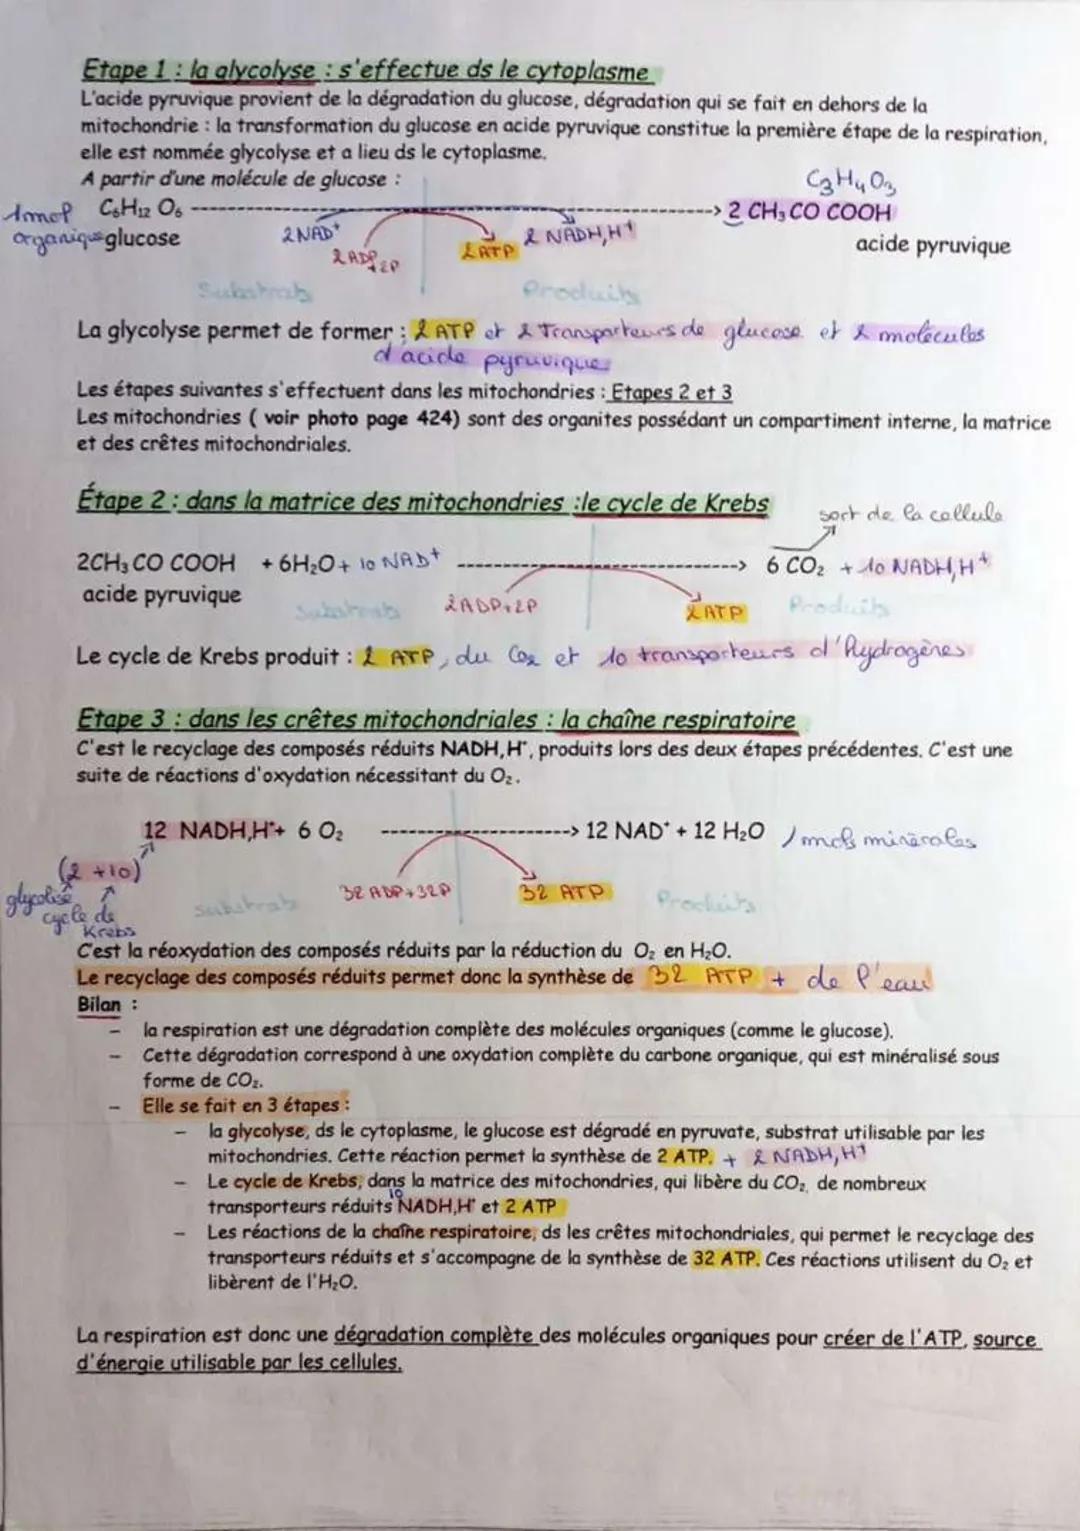 Etape 1 : la glycolyse : s'effectue ds le cytoplasme
L'acide pyruvique provient de la dégradation du glucose, dégradation qui se fait en dehors de la
mitochondrie : la transformation du glucose en acide pyruvique constitue la première étape de la respiration,
elle est nommée glycolyse et a lieu ds le cytoplasme.
A partir d'une molécule de glucose :
C₃H₄O₃
1 mol C₆H₁₂ O₆ ----------> 2 CH₃ CO COOH
organique glucose 2 NAD⁺ 2 ATP 2 NADH,H⁺ acide pyruvique
2 ADP + 2P
Substrats Produits
La glycolyse permet de former : 2 ATP et 2 Transporteurs de glucose et 2 molécules
d'acide pyruvique
Les étapes suivantes s'effectuent dans les mitochondries : Etapes 2 et 3
Les mitochondries ( voir photo page 424) sont des organites possédant un compartiment interne, la matrice
et des crêtes mitochondriales.
Étape 2 : dans la matrice des mitochondries :le cycle de Krebs
sort de la cellule
2CH₃ CO COOH + 6H₂O + 10 NAD⁺ ----------> 6 CO₂ + 10 NADH,H⁺
acide pyruvique Substrats 2ADP+2P 2 ATP Produits
Le cycle de Krebs produit : 2 ATP, du Co₂ et 10 transporteurs d'hydrogènes
Etape 3 : dans les crêtes mitochondriales : la chaîne respiratoire
C'est le recyclage des composés réduits NADH,H⁺, produits lors des deux étapes précédentes. C'est une
suite de réactions d'oxydation nécessitant du O₂.
12 NADH,H⁺+ 6 O₂ ----------> 12 NAD⁺ + 12 H₂O / mols minérales
(2 +10)
glycolise cycle de Krebs
substrats 32 ADP+32P 32 ATP Produits
C'est la réoxydation des composés réduits par la réduction du O₂ en H₂O.
Le recyclage des composés réduits permet donc la synthèse de 32 ATP + de l'eau
Bilan :
– la respiration est une dégradation complète des molécules organiques (comme le glucose).
– Cette dégradation correspond à une oxydation complète du carbone organique, qui est minéralisé sous
forme de CO₂.
– Elle se fait en 3 étapes :
– la glycolyse, ds le cytoplasme, le glucose est dégradé en pyruvate, substrat utilisable par les
mitochondries. Cette réaction permet la synthèse de 2 ATP. + 2 NADH,H⁺
– Le cycle de Krebs, dans la matrice des mitochondries, qui libère du CO₂, de nombreux
transporteurs réduits 10 NADH,H⁺ et 2 ATP
– Les réactions de la chaîne respiratoire, ds les crêtes mitochondriales, qui permet le recyclage des
transporteurs réduits et s'accompagne de la synthèse de 32 ATP. Ces réactions utilisent du O₂ et
libèrent de l'H₂O.
La respiration est donc une dégradation complète des molécules organiques pour créer de l'ATP, source
d'énergie utilisable par les cellules.